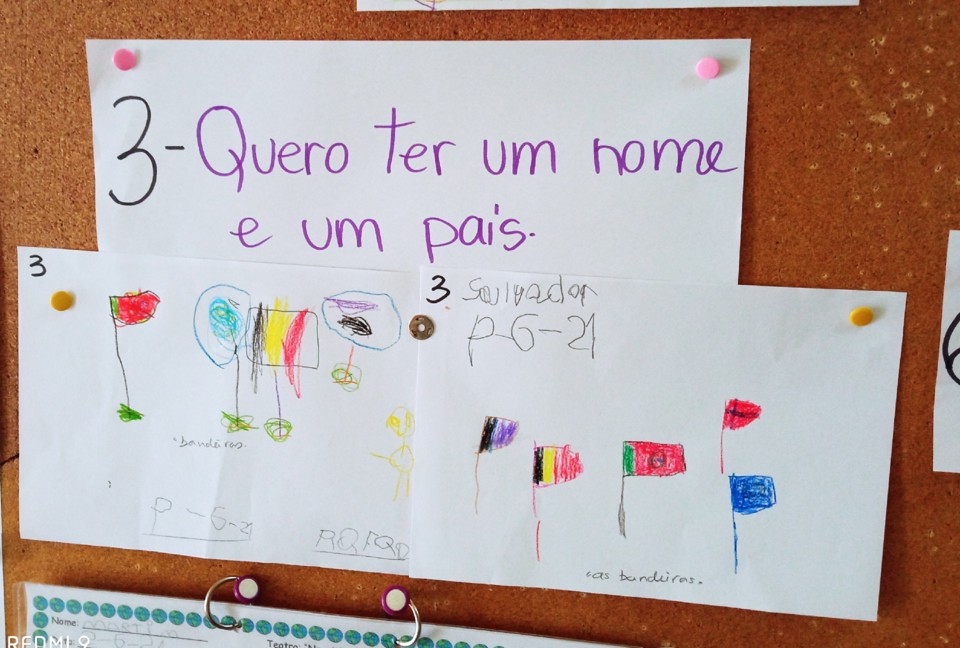 3-Quero ter um nome
e um país.
3
"bandeiras.
P-6-21
3
Salvador
P-6-21
"as bandeiras.
Nome:
Teatro: "N
REDMI 9